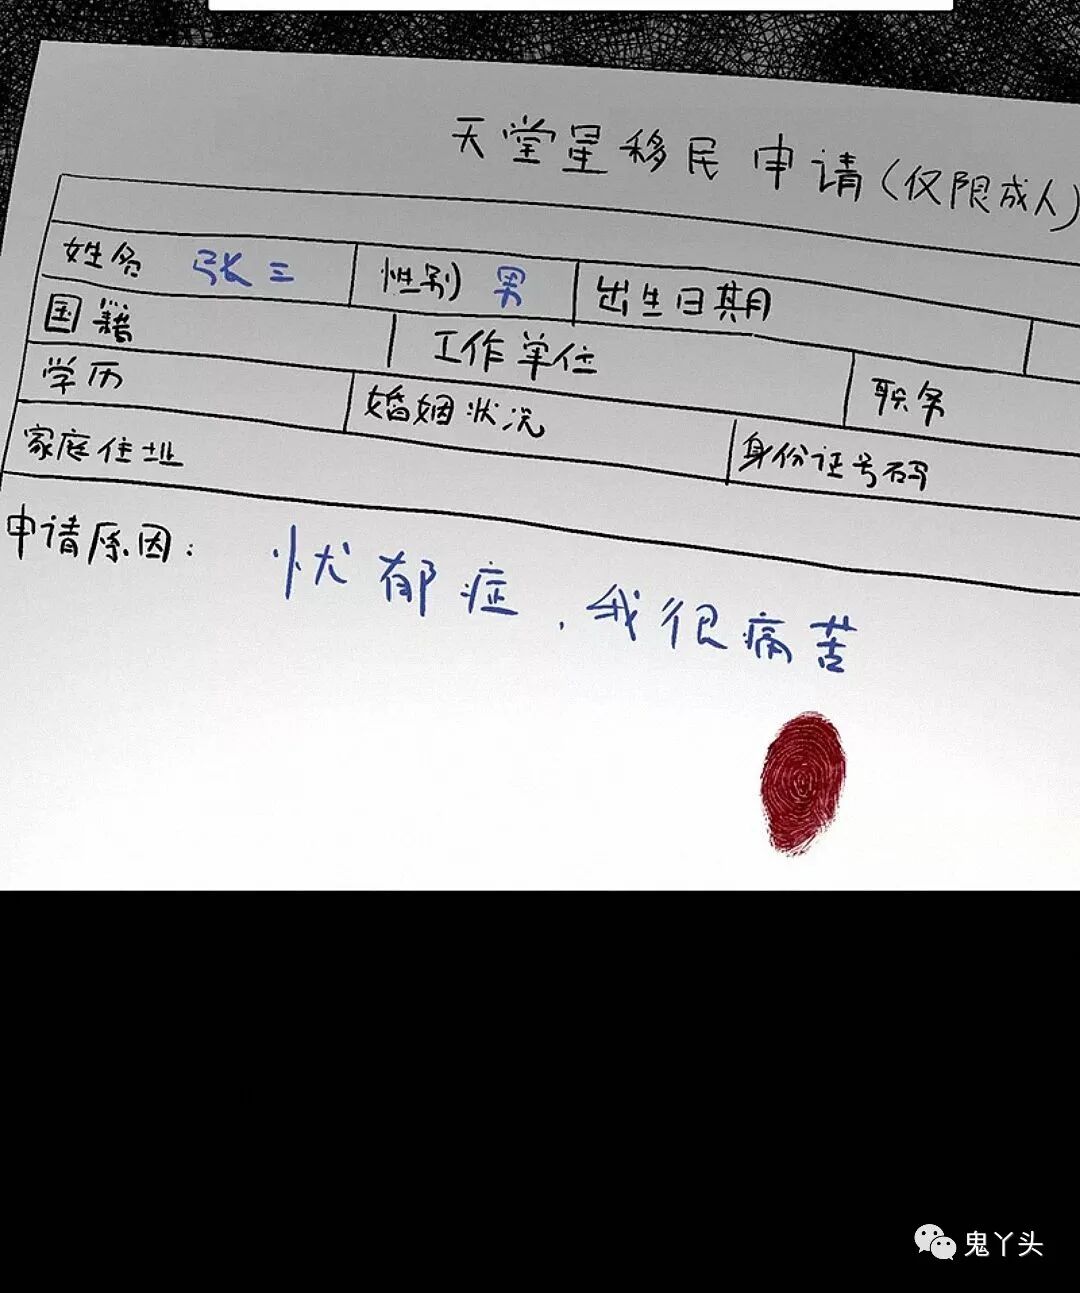 天堂星移民申请(仅限成人)
姓名 张三 性别 男 出生日期
国籍 工作单位 职务
学历 婚姻状况 身份证号码
家庭住址
申请原因: 忧郁症，我很痛苦
鬼丫头